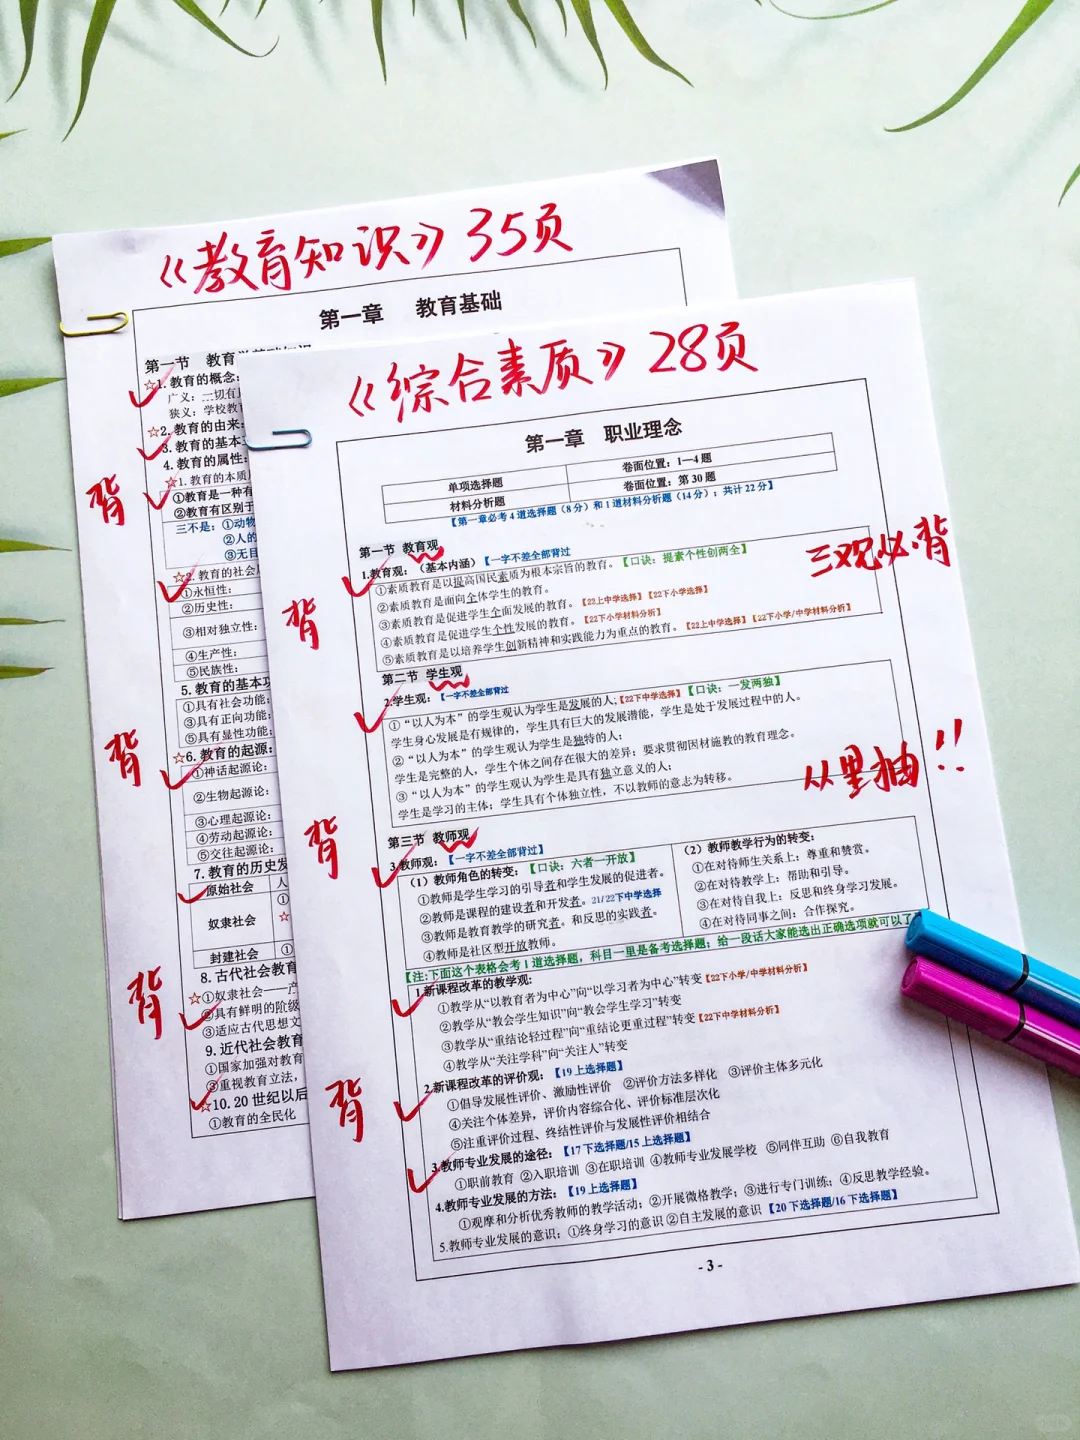 《教育知识》35页
第一章 教育基础
第一节 教育
☆1.教育的概念:
广义:
狭义:学校教育
☆2.教育的由来:
3.教育的基本
4.教育的属性:
☆1.教育的本质
背
①教育是一种有
②教育有区别于
三不是:①动物
②人的
③无目
☆2.教育的社会
①永恒性:
②历史性:
③相对独立性:
④生产性:
⑤民族性:
5.教育的基本功
①具有社会功能;
③具有正向功能;
⑤具有显性功能;
背
☆6.教育的起源:
①神话起源论:
②生物起源论:
③心理起源论:
④劳动起源论:
⑤交往起源论:
7.教育的历史发
原始社会 人
奴隶社会 ① ☆
封建社会 ①
8.古代社会教育
背
☆①奴隶社会——产
②具有鲜明的阶级
③适应古代思想文
9.近代社会教育
①国家加强对教育
③重视教育立法,
☆10.20世纪以后
①教育的全民化
《综合素质》28页
第一章 职业理念
单项选择题 卷面位置:1—4题
材料分析题 卷面位置:第30题
【第一章必考4道选择题(8分)和1道材料分析题(14分);共计22分】
第一节 教育观
三观必背
1.教育观:(基本内涵)【一字不差全部背过 【口诀:提素个性创两全】
①素质教育是以提高国民素质为根本宗旨的教育。
②素质教育是面向全体学生的教育。
背
③素质教育是促进学生全面发展的教育。【22上中学选择】【22下小学选择】
④素质教育是促进学生个性发展的教育。【22下小学材料分析】
⑤素质教育是以培养学生创新精神和实践能力为重点的教育。【22上中学选择】【22下小学/中学材料分析】
第二节 学生观
2.学生观:【一字不差全部背过 【口诀:一发两独】
①“以人为本”的学生观认为学生是发展的人;【22下中学选择】
学生身心发展是有规律的,学生具有巨大的发展潜能,学生是处于发展过程中的人。
②“以人为本”的学生观认为学生是独特的人;
学生是完整的人,学生个体之间存在很大的差异;要求贯彻因材施教的教育理念。
③“以人为本”的学生观认为学生是具有独立意义的人;
学生是学习的主体;学生具有个体独立性,不以教师的意志为转移。
从里抽!!
第三节 教师观
背
3.教师观:【一字不差全部背过】
(1)教师角色的转变:【口诀:六者一开放】
①教师是学生学习的引导者和学生发展的促进者。
②教师是课程的建设者和开发者。21/22下中学选择
③教师是教育教学的研究者。和反思的实践者。
④教师是社区型开放教师。
(2)教师教学行为的转变:
①在对待师生关系上:尊重和赞赏。
②在对待教学上:帮助和引导。
③在对待自我上:反思和终身学习发展。
④在对待同事之间:合作探究。
【注:下面这个表格会考1道选择题,科目一里是备考选择题;给一段话大家能选出正确选项就可以了
1.新课程改革的教学观:
①教学从“以教育者为中心”向“以学习者为中心”转变【22下小学/中学材料分析】
②教学从“教会学生知识”向“教会学生学习”转变
③教学从“重结论轻过程”向“重结论更重过程”转变【22下中学材料分析】
④教学从“关注学科”向“关注人”转变
背
2.新课程改革的评价观:【19上选择题】
①倡导发展性评价、激励性评价 ②评价方法多样化 ③评价主体多元化
④关注个体差异,评价内容综合化、评价标准层次化
⑤注重评价过程、终结性评价与发展性评价相结合
3.教师专业发展的途径:【17下选择题/15上选择题】
①职前教育 ②入职培训 ③在职培训 ④教师专业发展学校 ⑤同伴互助 ⑥自我教育
4.教师专业发展的方法:【19上选择题】
①观摩和分析优秀教师的教学活动;②开展微格教学;③进行专门训练;④反思教学经验。
5.教师专业发展的意识:①终身学习的意识 ②自主发展的意识【20下选择题/16下选择题】
- 3 -